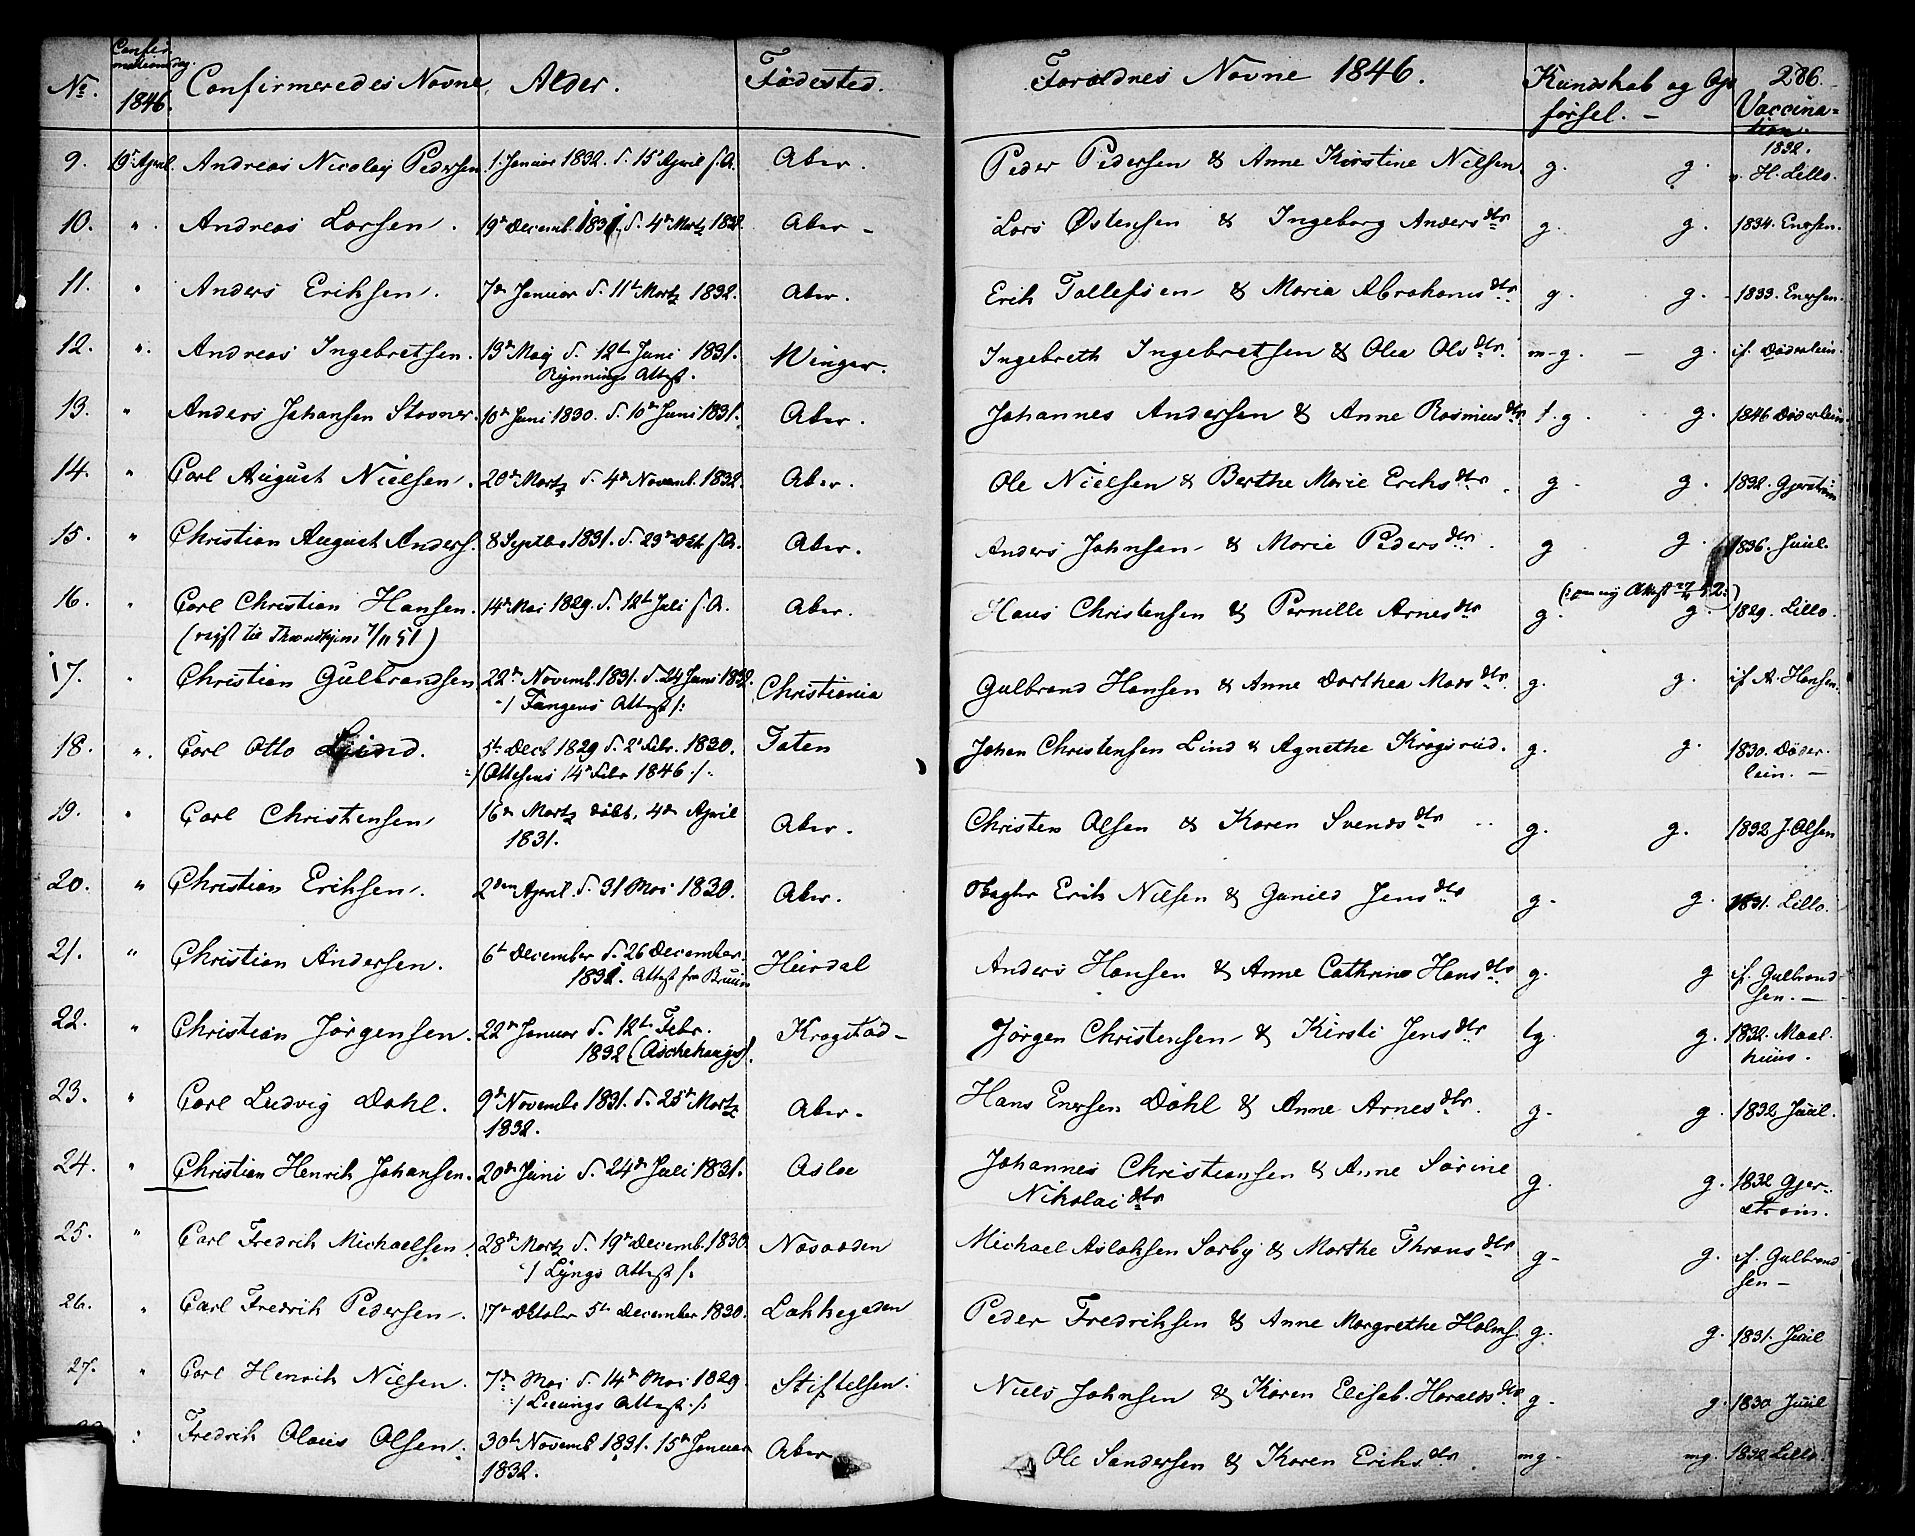 No. Confirmationsdag. 1846. Confirmeredes Navne. Alder. Fødested. Forældres Navne 1846. Kundskab og Opførsel. 286. Vaccination.
9. 19. April. Andreas Nicolay Pedersen 1. Januar 1832. d. 15 April s. A. Aker. Peder Pedersen & Anne Kirstine Nilsen. g. g. 1832. H. Lello.
10. " Andreas Larsen. 19de Decemb. 1831. d. 4de Martz 1832. Aker Lars Østensen & Ingeborg Andersdtr g. g. 1834. Enersen.
11. " Anders Eriksen. 7de Januar d. 11te Martz 1832. Aker. Erik Tollefsen & Maria Abrahamsdtr g. g. 1833. Enersen.
12. " Andreas Ingebretsen. 13de Maij d. 12te Juni 1831. Winger. Ingebreth Ingebretsen & Olea Olsdtr. m-g. g. if. Døderlein.
Rynnings Attest.
13. " Anders Johansen Stovner. 10de Juni 1830. d. 10de Juni 1831. Aker. Johannes Andersen & Anne Rasmusdtr t.g. g. 1846 Døderlein.
14. " Carl August Nielsen. 20de Martz d. 4de Novemb. 1832. Aker. Ole Nielsen & Berthe Marie Eriksdtr g. g. 1832. Gjerstrøm
15. " Christian August Anders. 8 Septbr 1831. d. 23de Okt s. A. Aker. Anders Johnsen & Marie Pedersdtr g g. 1836. Juul.
16. " Carl Christian Hansen. 14de Mai 1829. d. 12te Juli s. A. Aker. Hans Christensen & Pernille Arnesdtr g. g. 1829. Lillo.
(rejst til Throndhjem 7/11 51)
17. " Christian Gulbrandsen 22de Novemb. 1831. d. 24 Juni 1832. Christiania Gulbrand Hansen & Anne Dorthea Madsdtr g. g. if A. Hansen.
/ Tangens Attest /:
18. " Carl Otto Lund. 5te Decb. 1829 d. 2de Febr. 1830. Toten Johan Christensen Lind & Agnethe Krogsrud. g. g. 1830. Døderlein.
/ 14de Febr 1846 /.
19. " Carl Christensen 16de Martz døbt. 4de April 1831. Aker. Christen Olsen & Karen Svendsdtr g. g. 1832 J. Olsen
20. " Christian Eriksen. 2den April. d. 31 Mai 1830. Aker. Erik Nilsen & Gunild Jensdtr g. g. 1831. Lillo.
21. " Christian Andersen. 6te December d. 26 December. 1831. Attest fra Bruun Heirdal Anders Hansen & Anne Cathrine Hansdtr g. g if. Gulbrandsen.
22. " Christian Jørgensen. 22de Januar d. 12te Febr. 1832 (Aschehougs). Krogstad Jørgen Christensen & Kirsti Jensdtr tg. g. 1832. Maalhuus.
23. " Carl Ludvig Dahl. 9de Novembr 1831. d. 25de Martz 1832. Aker. Hans Enersen Dahl & Anne Arnesdtr. g. g. 1832 Juul.
24. " Christian Henrik Johansen. 20de Juni d. 24de Juli 1831. Asloe Johannes Christiansen & Anne Sørine Nikolaidtr g. g. 1832 Gjerstrøm.
25. " Carl Fredrik Michaelsen. 28de Martz d. 19de Decemb. 1830. Næsodden Michael Aslaksen Sørby & Marthe Thronsdtr g. g. if. Gulbrandsen
/ Lyngs Attest /:
26. " Carl Fredrik Pedersen. 17de Oktober 5te December 1830. Lakkegaden Peder Fredriksen & Anne Margrethe Holms. g. g. 1831. Juul
27. " Carl Henrik Nilsen. 7de Mai d. 14de Mai 1829 Stiftelsen. Niels Johnsen & Karen Elisab. Haraldsdtr g. g. 1830 Juul
Attest. /:
Fredrik Olaus Olsen. 30te Novemb 1831. 15de Januar 1832. Aker Ole Sandersen & Karen Eriksdtr. mg. mg. 1832 Lillo.